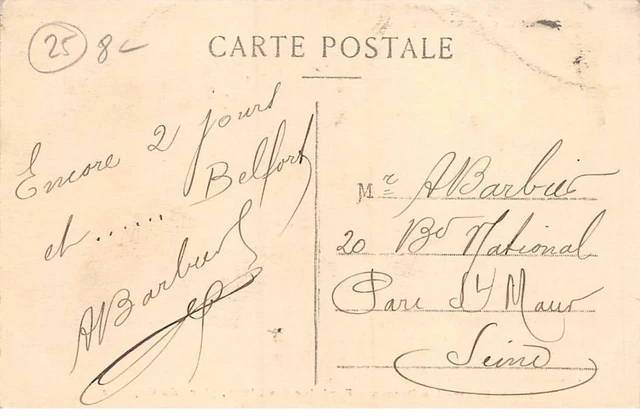 25 8
CARTE POSTALE
Encore 2 jours
et ...... Belfort
ABarbier
Mr ABarbier
20 Bd National
Parc St Maur
Seine